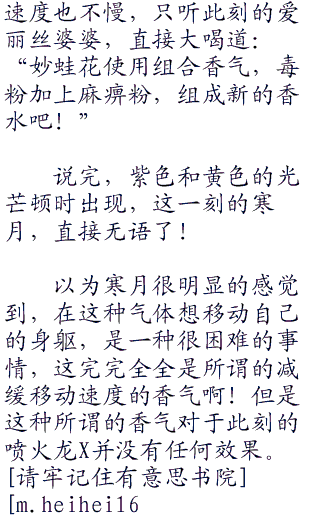 速度也不慢，只听此刻的爱
丽丝婆婆，直接大喝道：
“妙蛙花使用组合香气，毒
粉加上麻痹粉，组成新的香
水吧！”
说完，紫色和黄色的光
芒顿时出现，这一刻的寒
月，直接无语了！
以为寒月很明显的感觉
到，在这种气体想移动自己
的身躯，是一种很困难的事
情，这完完全全是所谓的减
缓移动速度的香气啊！但是
这种所谓的香气对于此刻的
喷火龙X并没有任何效果。
[请牢记住有意思书院]
[m.heihei16